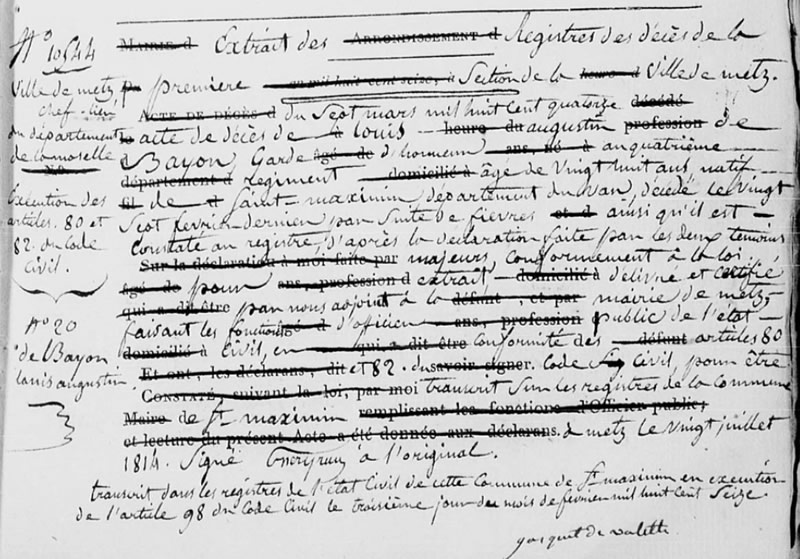 N.º 10544
Ville de metz,
chef-lieu
du département
de la moselle
Exécution des
articles. 80 et
82. du Code
Civil.
N.º 20
de Bayon
louis augustin
MAIRIE d Extrait des ARRONDISSEMENT d Registres des décès de la
premiere an mil huit cent seize, à Section de la heure d Ville de metz.
ACTE DE DÉCÈS d du Sept mars mil huit Cent quatorze décédé
le acte de décès de à louis heure du augustin profession de
d Bayon Garde âgé de d'honneur ans, né à au quatrième
département d regiment domicilié à âgé de Vingt huit ans natif
fil de d Saint-maximin département du var, décédé le Vingt
Sept fevrier dernier par Suite de fievres et d ainsi qu'il est
Constaté au registre, d'après la declaration faite par les deux temoins
Sur la déclaration à moi faite par majeurs, conformement à la loi
âgé de pour ans, profession d extrait domicilié à délivré et certifié
qui a dit être par nous adjoint à la défunt, et par mairie de metz,
faisant les fonctions âgé d d'officier ans, profession public de l'état
domicilié à Civil, en qui a dit être Conformité des défunt articles 80
Et ont, les déclarans, dit et 82. du savoir signer. Code Civil pour être
CONSTATÉ, suivant la loi, par moi transcrit Sur les registres de la Commune
Maire de St maximin remplissant les fonctions d'Officier public;
et lecture du présent Acte a été donnée aux déclarans. à metz le Vingt juillet
1814. Signé à l'original.
transcrit dans les régistres de l'état Civil de cette Commune de St maximin en execution
de l'article 98 du Code Civil le troisième jour du mois de fevrier mil huit Cent Seize.
gasquet de valette